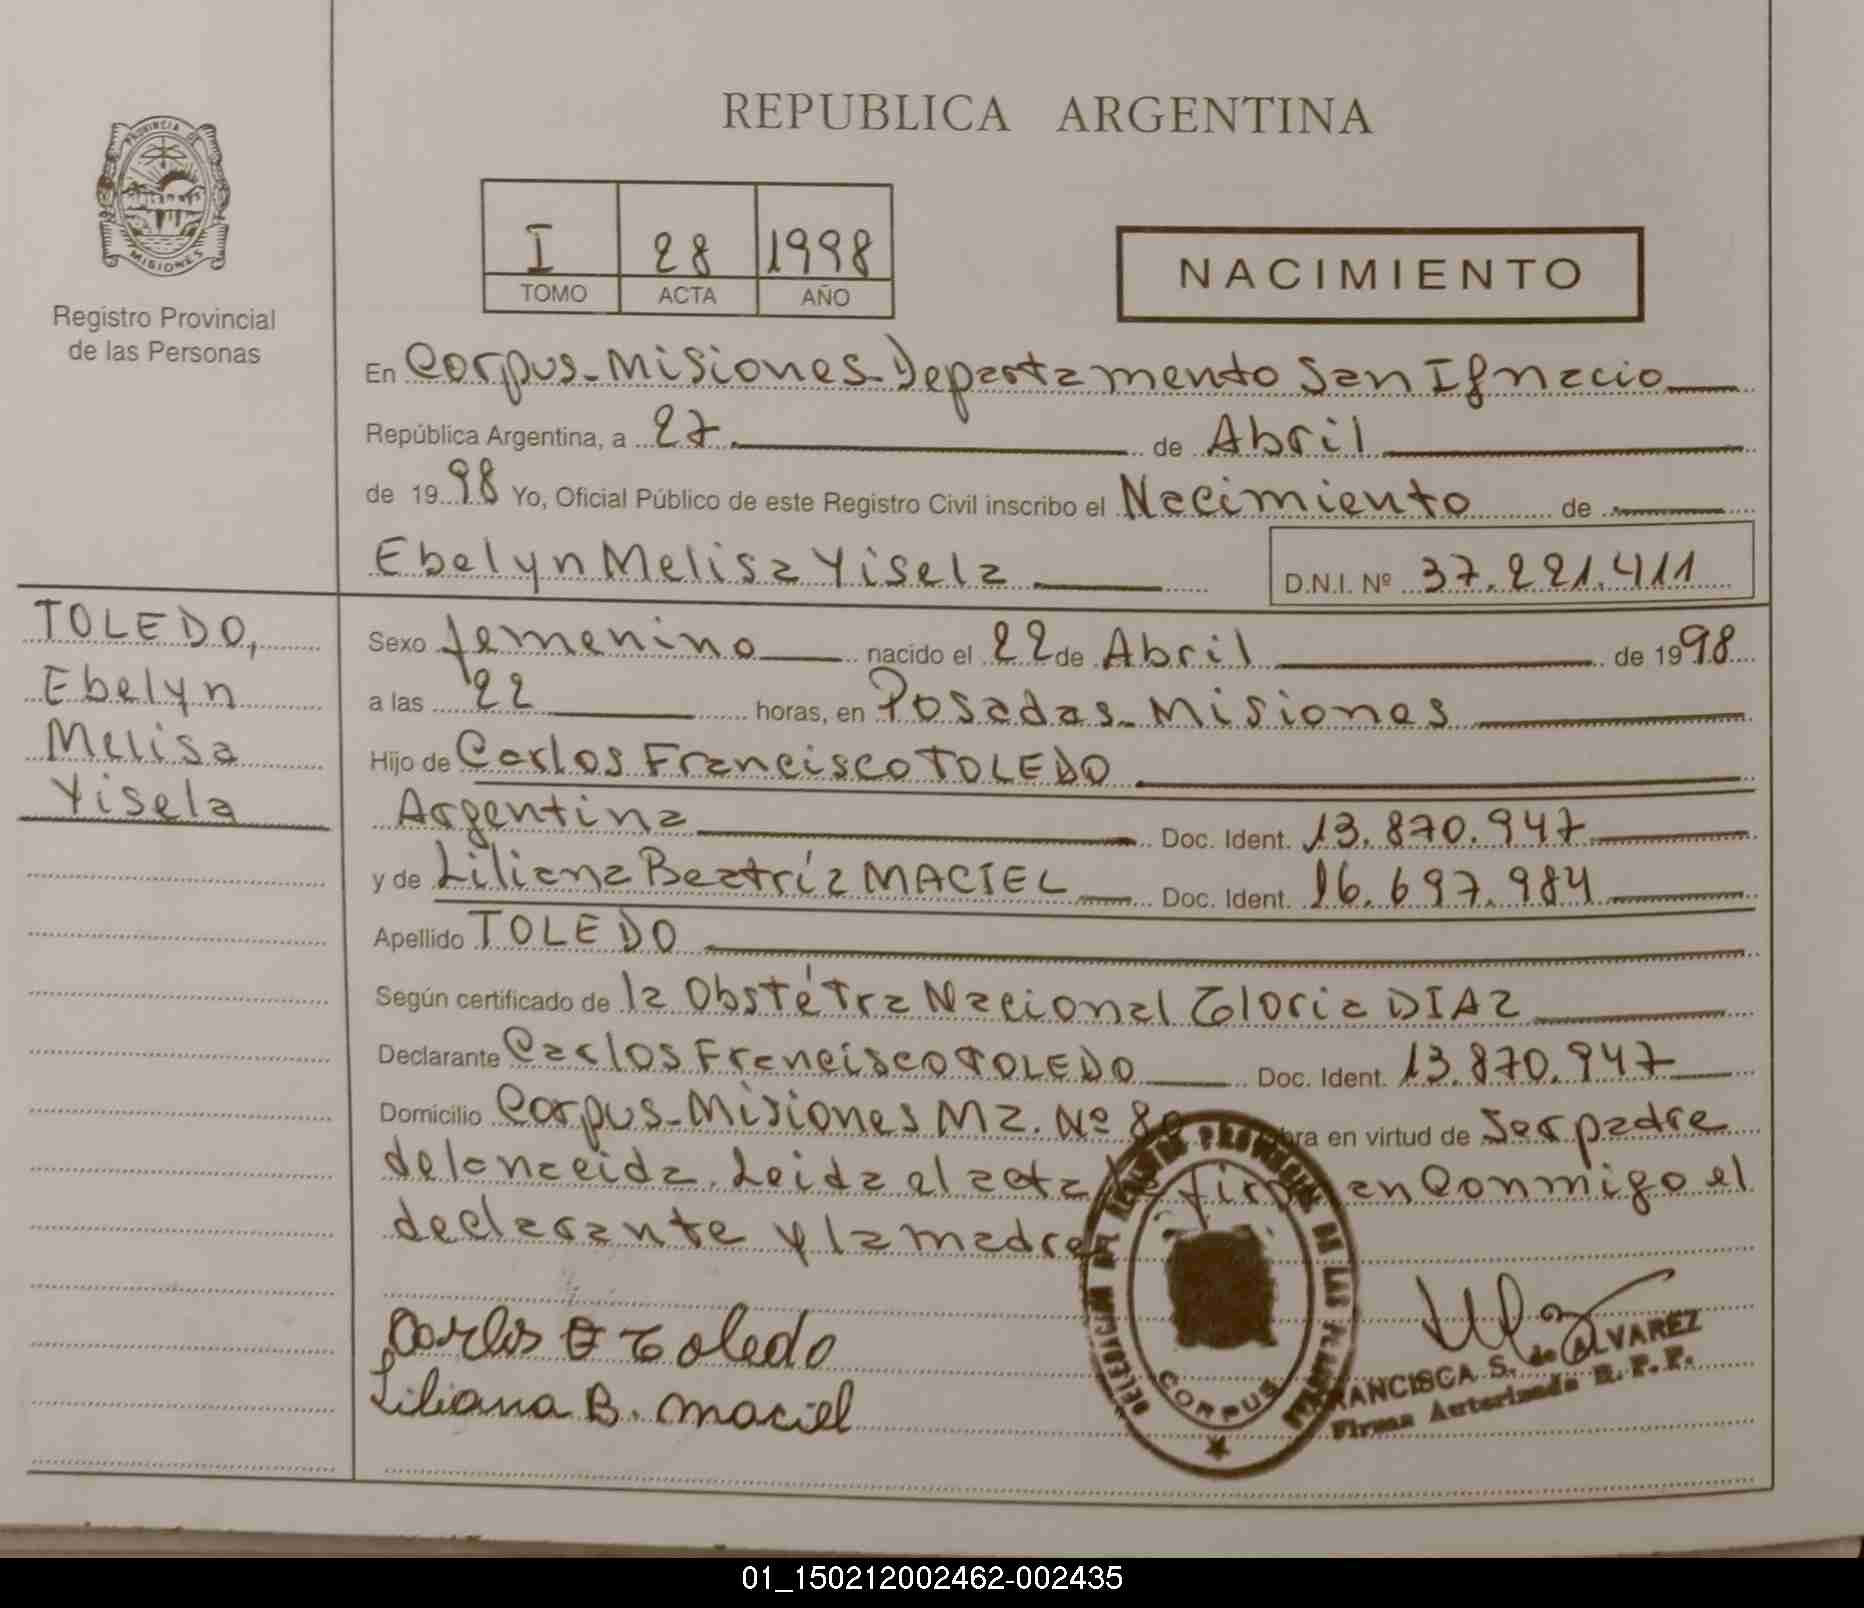 REPUBLICA ARGENTINA
PROVINCIA DE
MISIONES
Registro Provincial
de las Personas
I 28 1998
TOMO ACTA AÑO
NACIMIENTO
En Corpus-Misiones-Departamento San Ignacio
República Argentina, a 27 de Abril
de 1998 Yo, Oficial Público de este Registro Civil inscribo el Nacimiento de
Ebelyn Melisa Yisela D.N.I. Nº 37.221.411
TOLEDO,
Ebelyn
Melisa
Yisela
Sexo femenino nacido el 22 de Abril de 1998
a las 22 horas, en Posadas-Misiones
Hijo de Carlos Francisco TOLEDO
Argentina Doc. Ident. 13.870.947
y de Liliana Beatríz MACIEL Doc. Ident. 16.697.984
Apellido TOLEDO
Según certificado de la Obstétra Nacional Gloria DIAZ
Declarante Carlos Francisco TOLEDO Doc. Ident. 13.870.947
Domicilio Corpus-Misiones Mz. Nº 8 Obra en virtud de Ser padre
de la nacida. Leida el acta firman conmigo el
declarante y la madre
Carlos F Toledo
Liliana B. Maciel
DELEGACION DEL REGISTRO PROVINCIAL DE LAS PERSONAS
CORPUS
FRANCISCA S. de ALVAREZ
Firma Autorizada R. P. P.
01_150212002462-002435